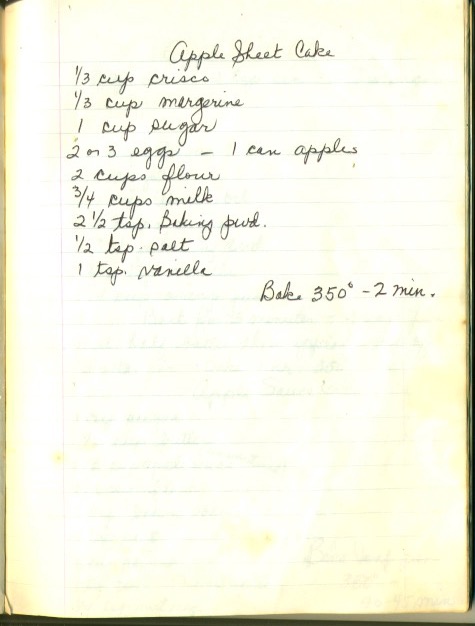 Apple Sheet Cake
1/3 cup crisco
1/3 cup margerine
1 cup sugar
2 or 3 eggs - 1 can apples
2 cups flour
3/4 cups milk
2 1/2 tsp. Baking pwd.
1/2 tsp. salt
1 tsp. vanilla
Bake 350° - 2 min.